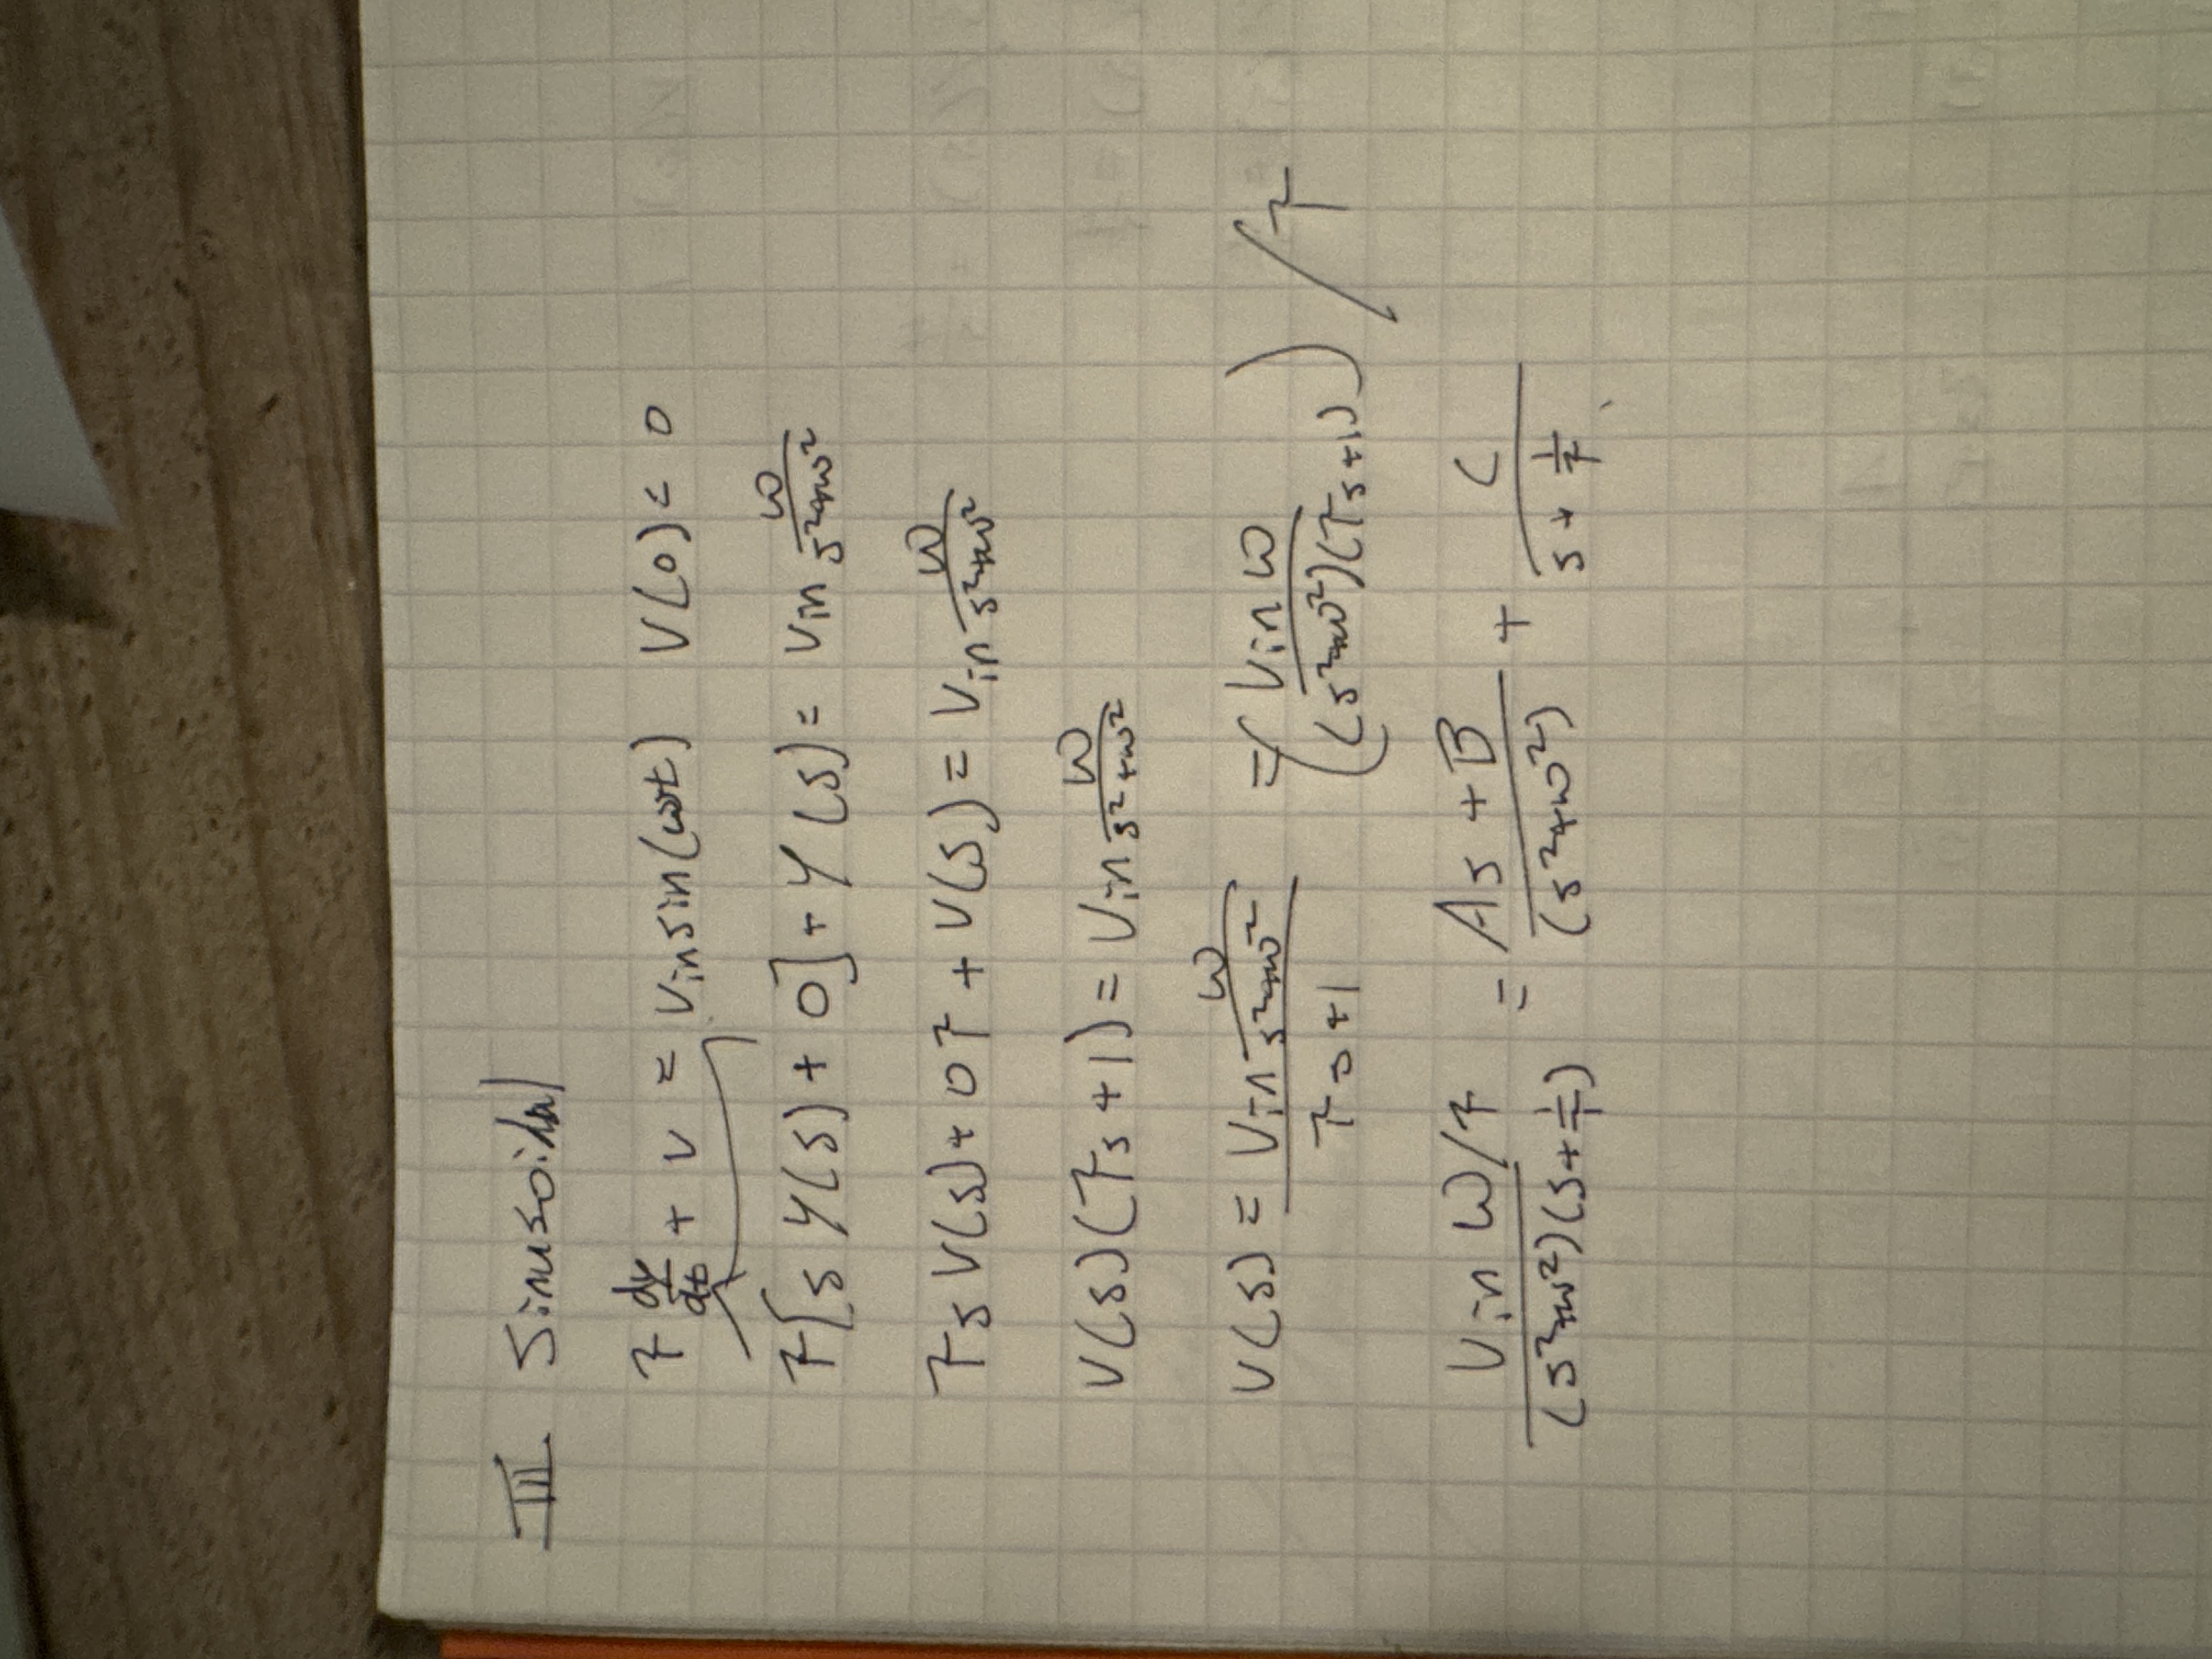 III Sinusoidal
τ dv/dt + v = Vin sin(ωt) V(0) = 0
τ[s Y(s) + 0] + Y(s) = Vin ω/(s²+ω²)
τs V(s) + 0τ + V(s) = Vin ω/(s²+ω²)
V(s)(τs + 1) = Vin ω/(s²+ω²)
V(s) = (Vin ω/(s²+ω²))/(τs+1) = (Vin ω/((s²+ω²)(τs+1))) / τ
(Vin ω/τ)/((s²+ω²)(s+1/τ)) = (As + B)/(s²+ω²) + C/(s+1/τ)